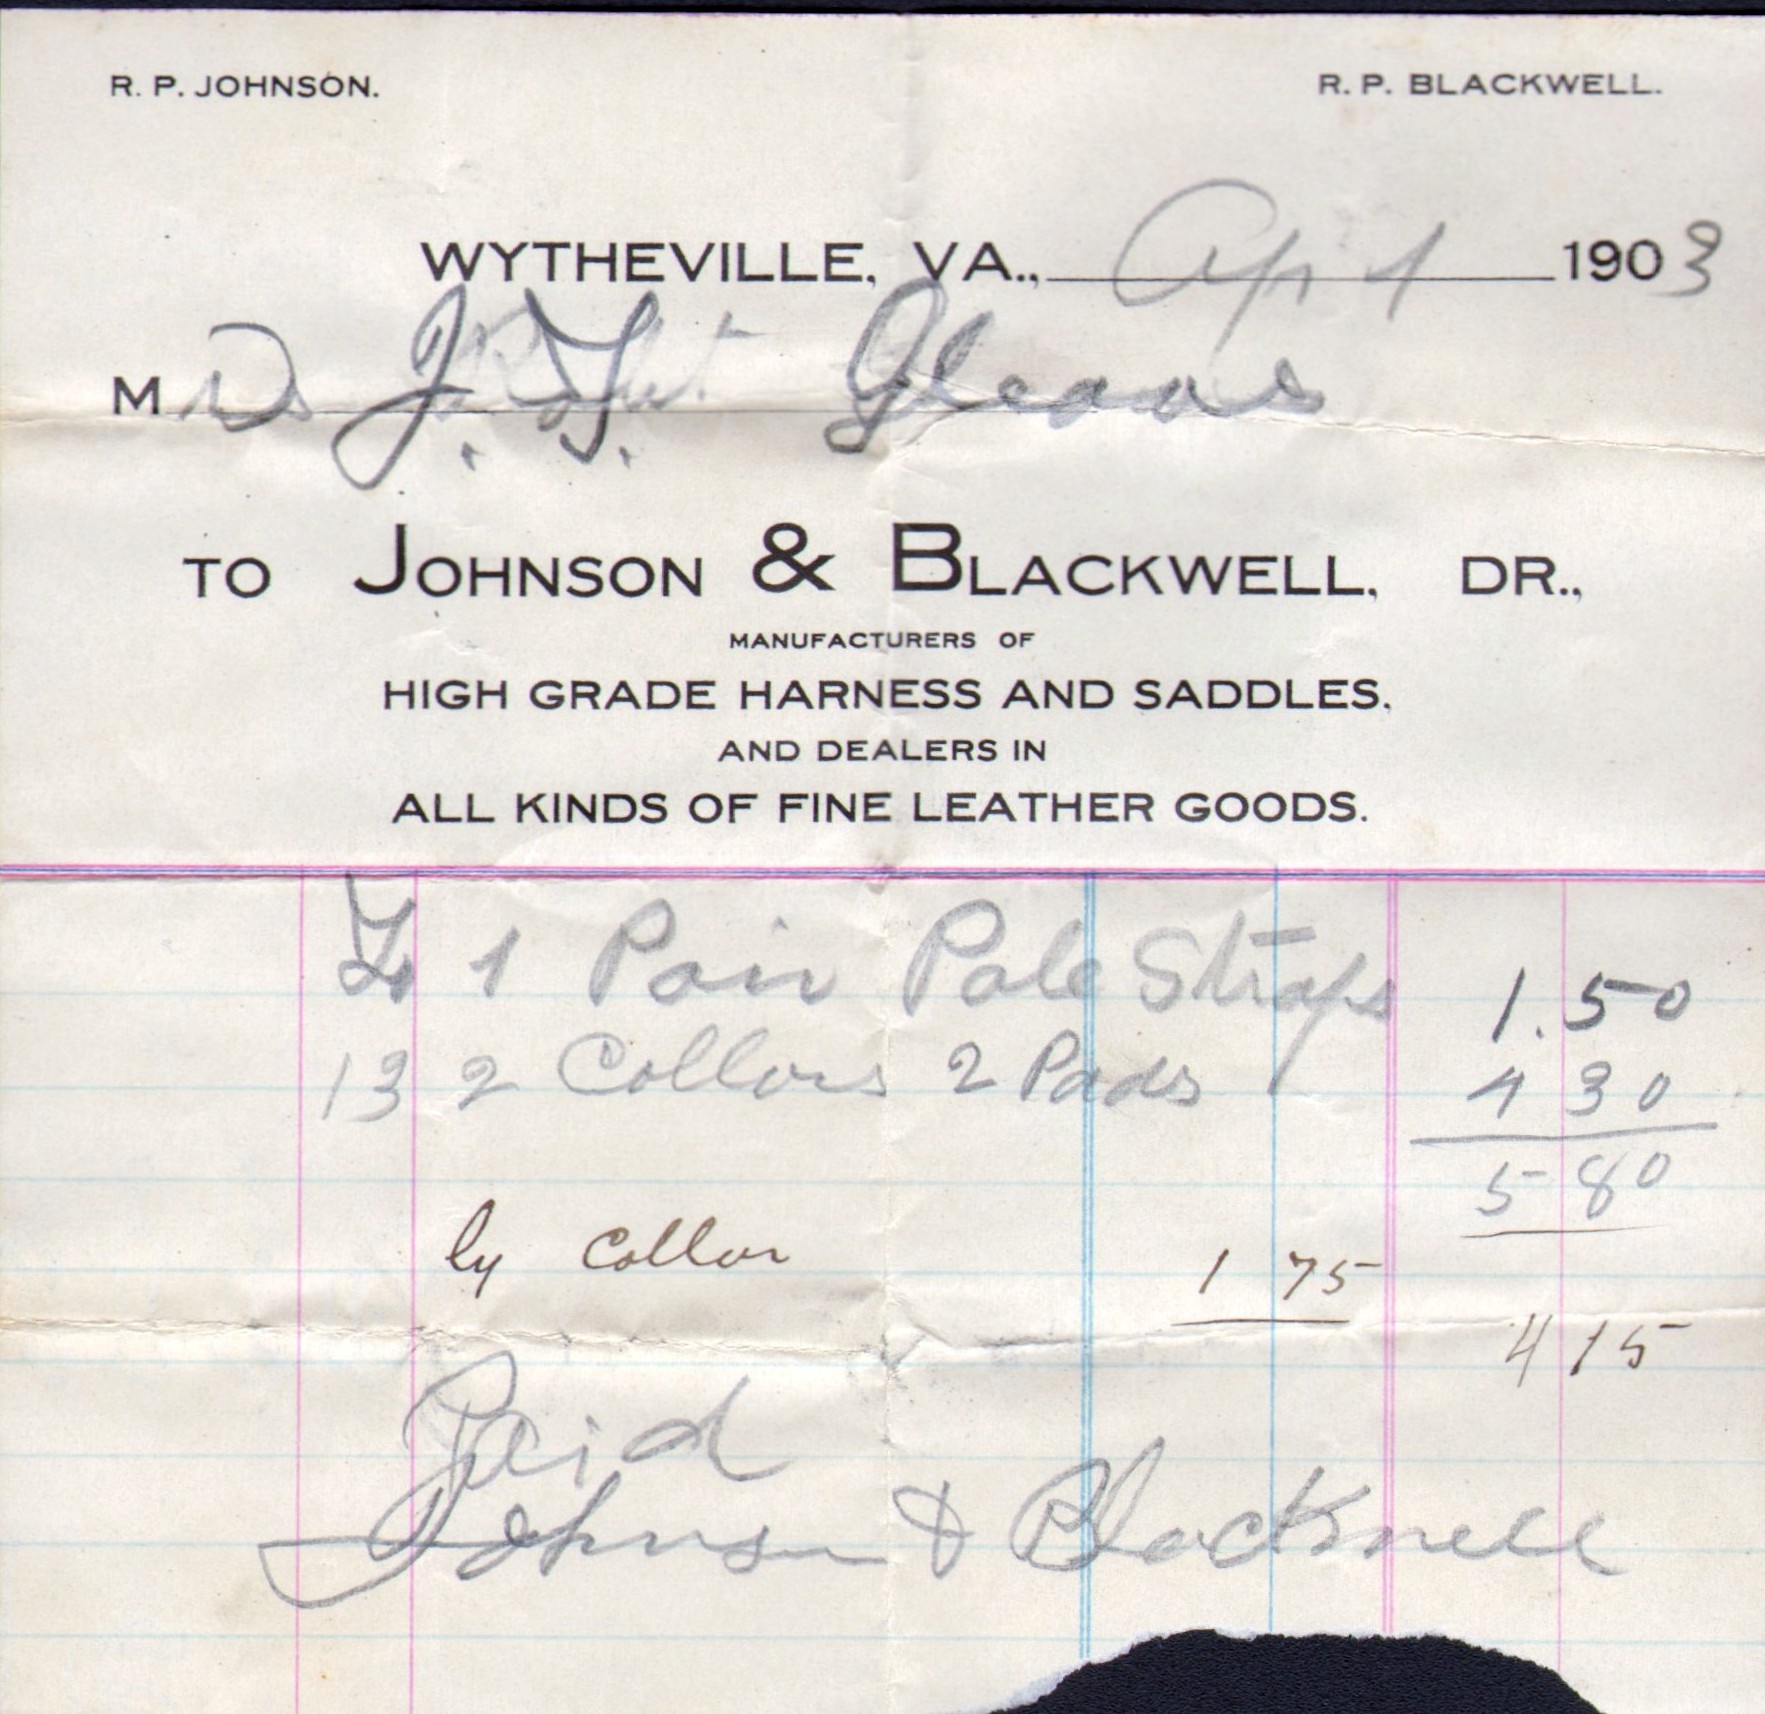 R. P. JOHNSON. R. P. BLACKWELL.
WYTHEVILLE, VA., Apr 1 1903
M J. T. Gleaves
TO JOHNSON & BLACKWELL, DR.,
MANUFACTURERS OF
HIGH GRADE HARNESS AND SADDLES.
AND DEALERS IN
ALL KINDS OF FINE LEATHER GOODS.
To 1 Pair Pole Straps 1.50
13 2 Collars 2 Pads 4 30
5 80
by Collar 1 75
4 15
Paid
Johnson & Blackwell